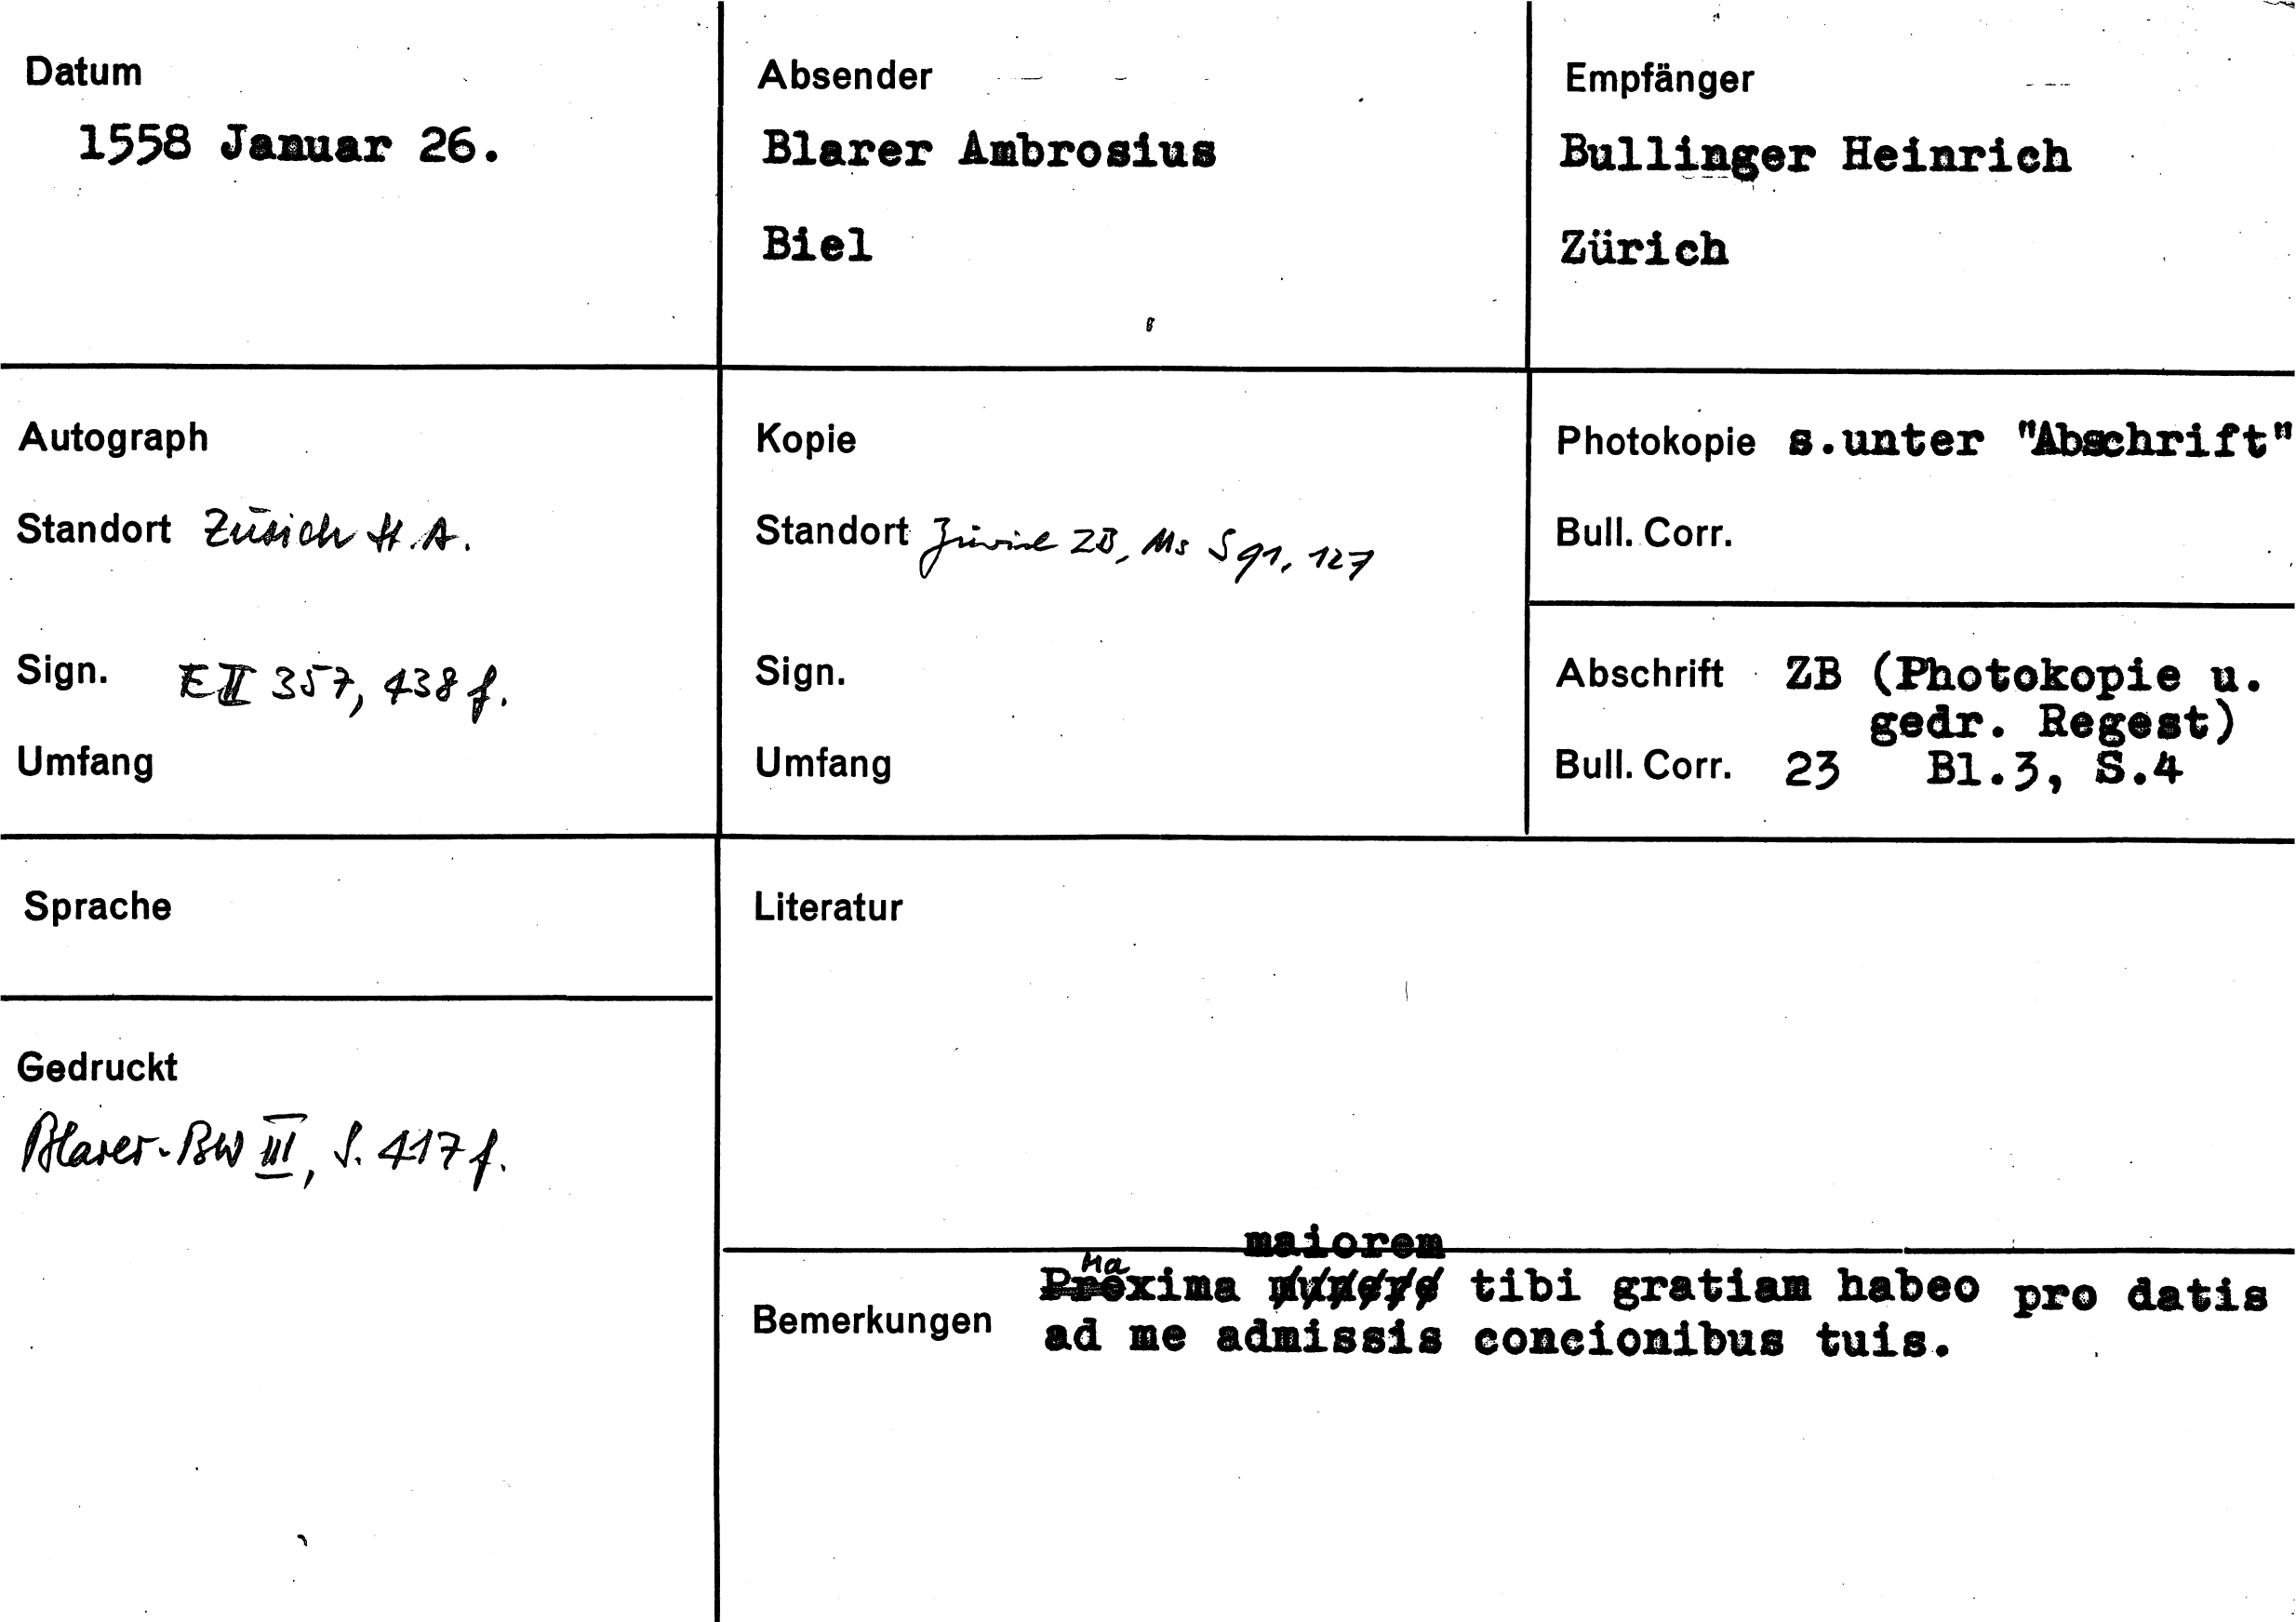 Datum
1558 Januar 26.
Absender
Blarer Ambrosius
Biel
Empfänger
Bullinger Heinrich
Zürich
Autograph
Standort Zürich St.A.
Sign. E II 357, 438 f.
Umfang
Kopie
Standort Zürich ZB, Ms S 91, 127
Sign.
Umfang
Photokopie s.unter "Abschrift"
Bull. Corr.
Abschrift ZB (Photokopie u.
gedr. Regest)
Bull. Corr. 23 Bl.3, S.4
Sprache
Gedruckt
Blarer-BW III, S. 417 f.
Literatur
maiorem
Ma
Bemerkungen Proxima munere tibi gratiam habeo pro datis
ad me admissis concionibus tuis.